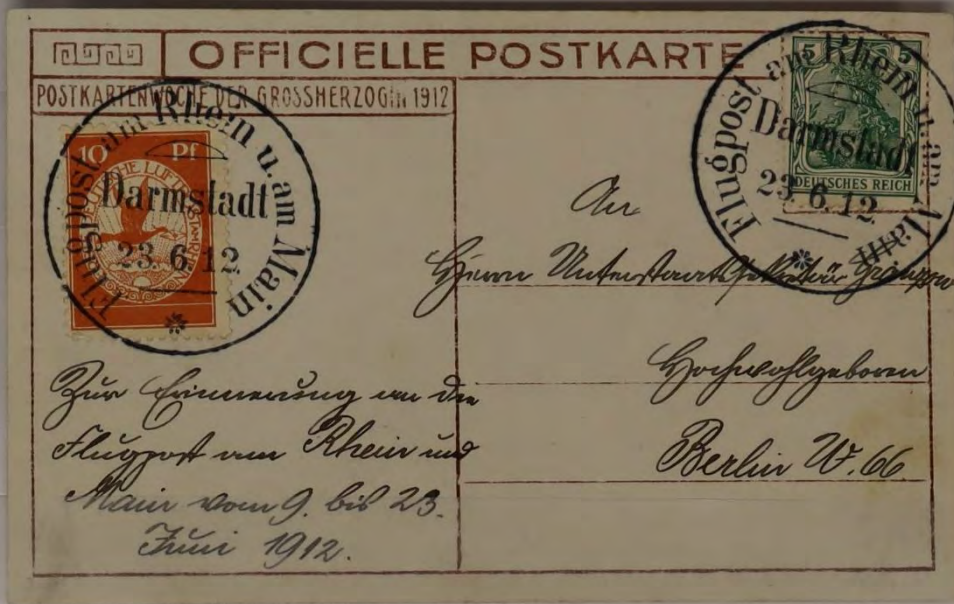 OFFICIELLE POSTKARTE
POSTKARTENWOCHE DER GROSSHERZOGIN 1912
10 Pf
Flugpost am Rhein u. am Main
Darmstadt
23. 6. 12
5
DEUTSCHES REICH
Flugpost am Rhein u. am Main
Darmstadt
23. 6. 12
An
Herrn Unterstaatssekretär
Hochwohlgeboren
Berlin W. 66.
Zur Erinnerung an die
Flugpost am Rhein und
Main vom 9. bis 23.
Juni 1912.